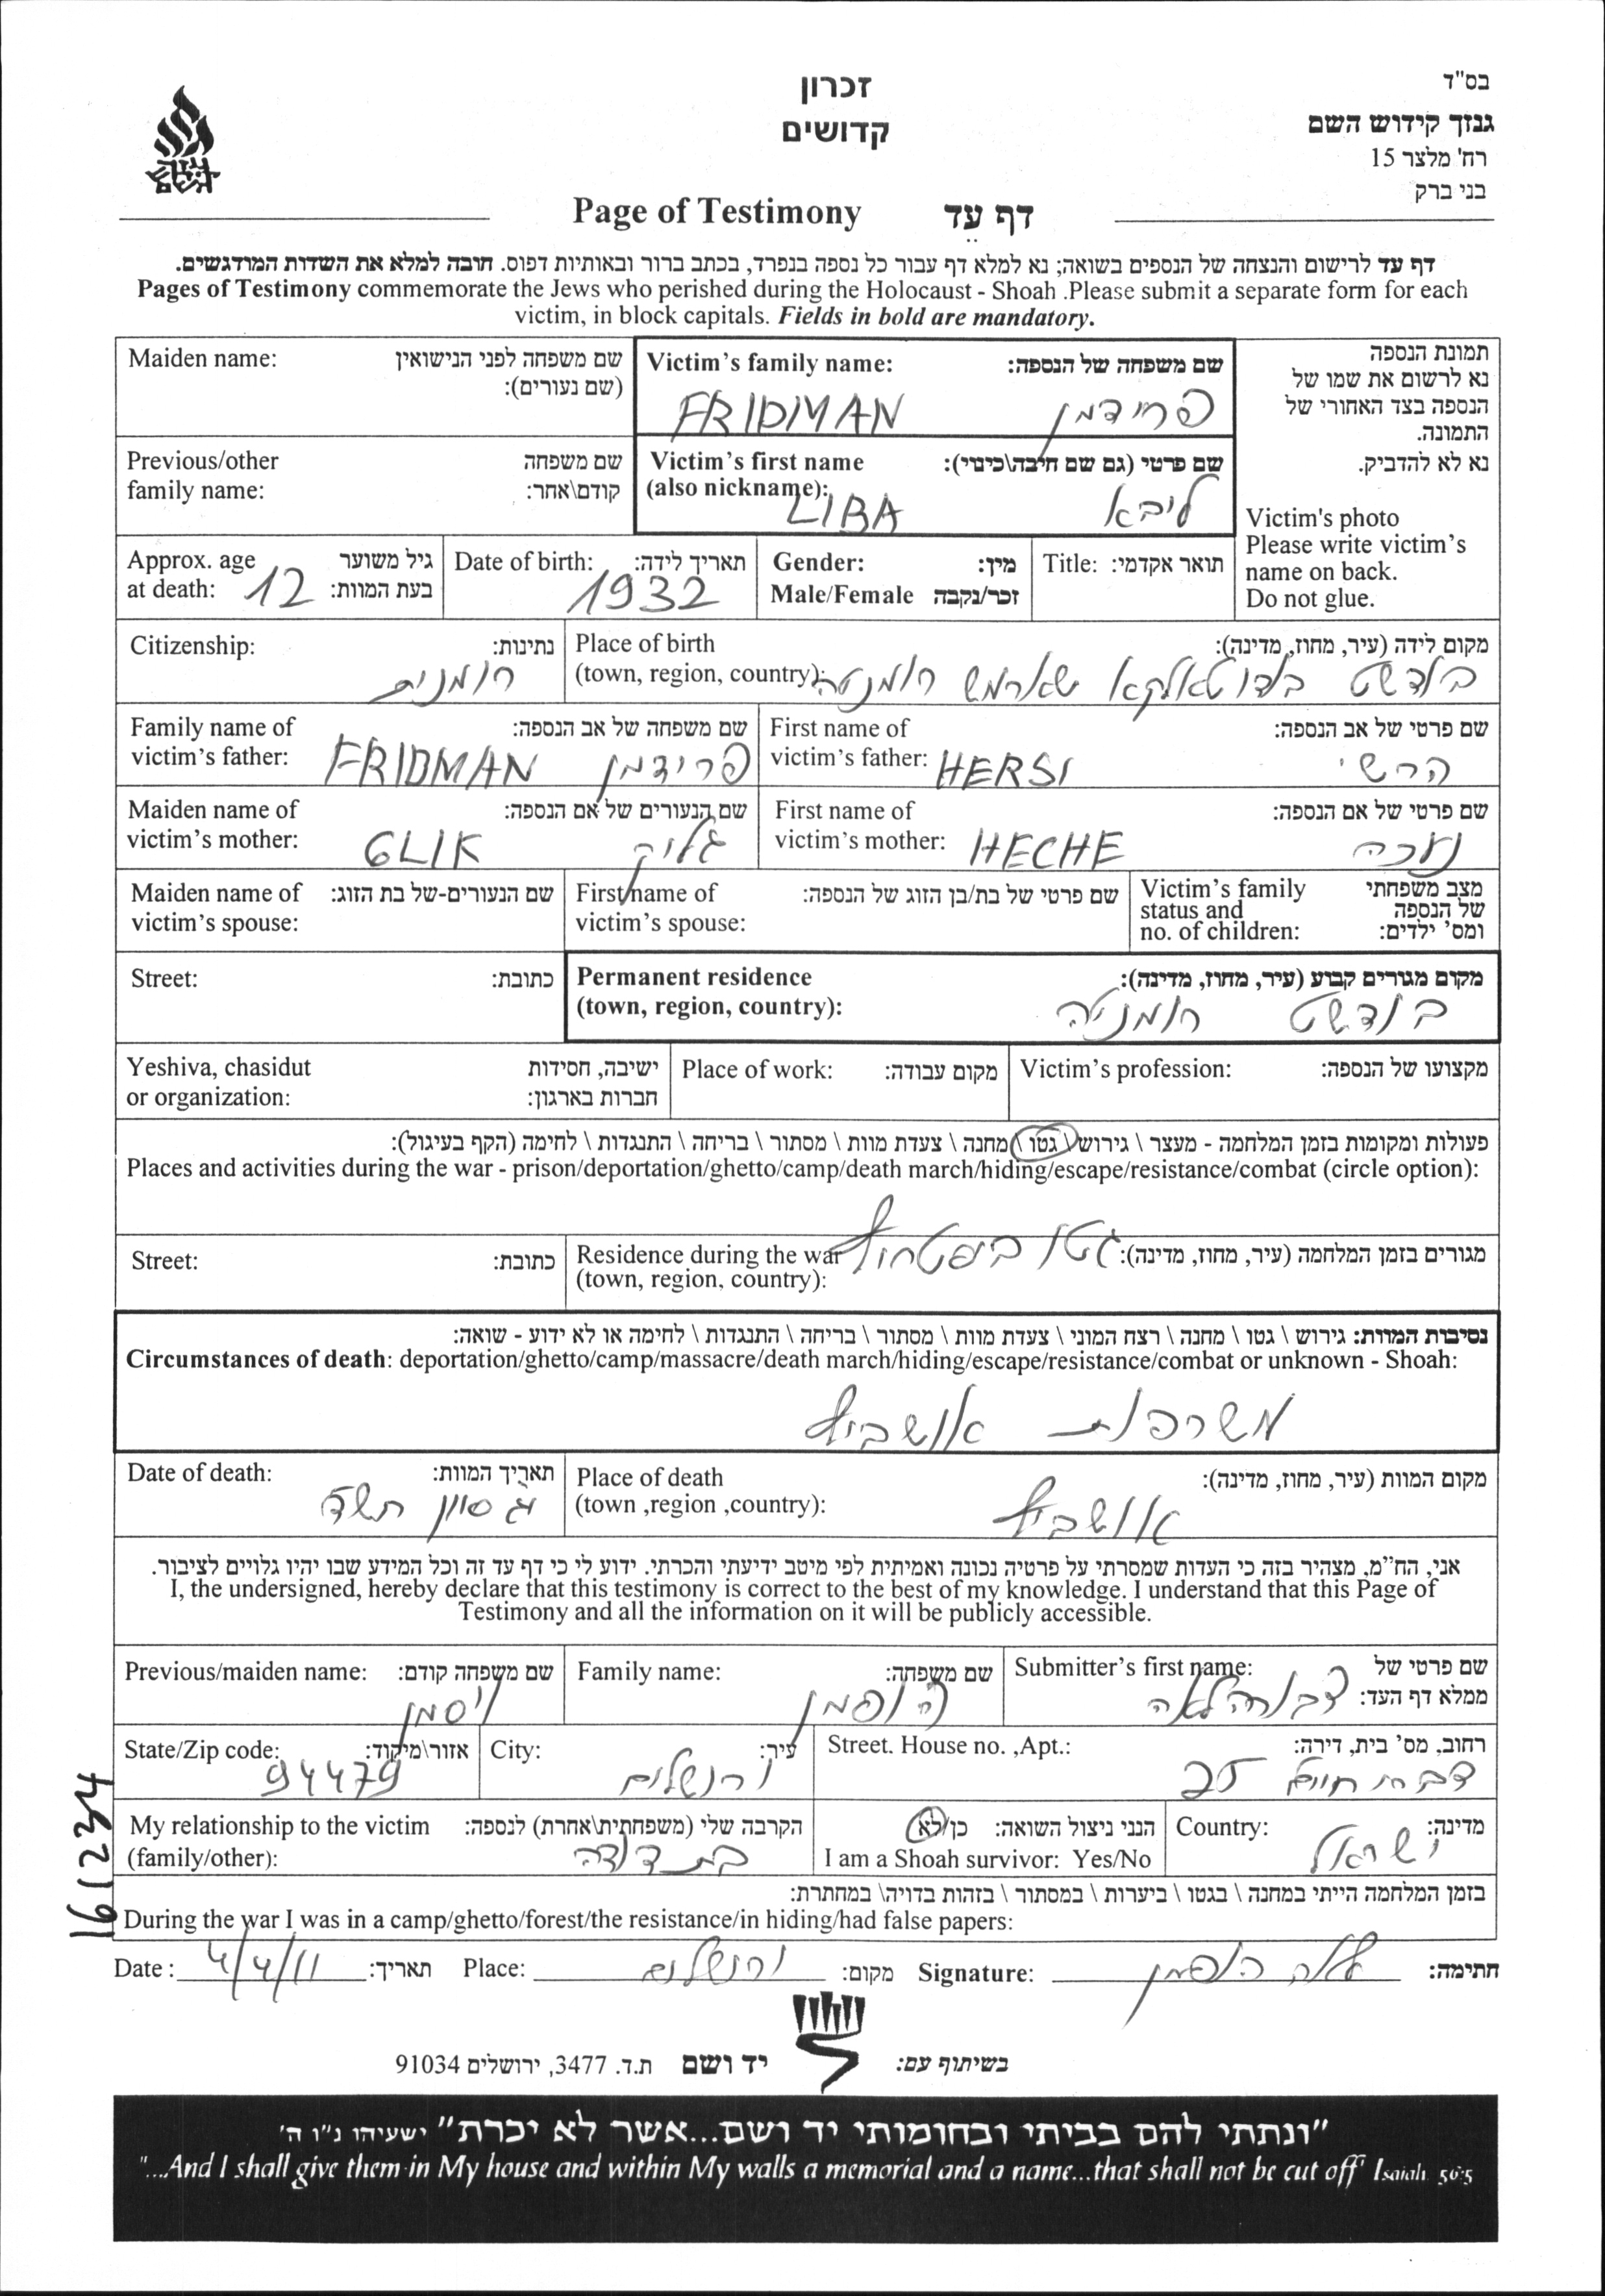 בס"ד
גנזך קידוש השם
רח' מלצר 15
בני ברק
זכרון
קדושים
Page of Testimony דף עד
דף עד לרישום והנצחה של הנספים בשואה; נא למלא דף עבור כל נספה בנפרד, בכתב ברור ובאותיות דפוס. חובה למלא את השדות המודגשים.
Pages of Testimony commemorate the Jews who perished during the Holocaust - Shoah .Please submit a separate form for each
victim, in block capitals. Fields in bold are mandatory.
תמונת הנספה
נא לרשום את שמו של
הנספה בצד האחורי של
התמונה.
נא לא להדביק.
Victim's photo
Please write victim's
name on back.
Do not glue.
Victim's family name: שם משפחה של הנספה:
FRIDMAN פרידמן
Maiden name: שם משפחה לפני הנישואין
(שם נעורים):
Victim's first name שם פרטי (גם שם חיבה\כינוי):
(also nickname):
LIBA ליבא
Previous/other שם משפחה
family name: קודם\אחר:
Title: תואר אקדמי:
Gender: מין:
Male/Female זכר/נקבה
Date of birth: תאריך לידה:
1932
Approx. age גיל משוער
at death: 12 בעת המוות:
Place of birth מקום לידה (עיר, מחוז, מדינה):
(town, region, country): רומניה
Citizenship: נתינות:
רומנית
First name of שם פרטי של אב הנספה:
victim's father: HERSI הרשי
Family name of שם משפחה של אב הנספה:
victim's father: FRIDMAN פרידמן
First name of שם פרטי של אם הנספה:
victim's mother: HECHE
Maiden name of שם הנעורים של אם הנספה:
victim's mother: GLIK גליק
Victim's family מצב משפחתי
status and של הנספה
no. of children: ומס' ילדים:
First name of שם פרטי של בת/בן הזוג של הנספה:
victim's spouse:
Maiden name of שם הנעורים-של בת הזוג:
victim's spouse:
Permanent residence מקום מגורים קבוע (עיר, מחוז, מדינה):
(town, region, country): בודשט רומניה
Street: כתובת:
Victim's profession: מקצועו של הנספה:
Place of work: מקום עבודה:
Yeshiva, chasidut ישיבה, חסידות
or organization: חברות בארגון:
פעולות ומקומות בזמן המלחמה - מעצר \ גירוש \ גטו \ מחנה \ צעדת מוות \ מסתור \ בריחה \ התנגדות \ לחימה (הקף בעיגול):
Places and activities during the war - prison/deportation/ghetto/camp/death march/hiding/escape/resistance/combat (circle option):
Residence during the war מגורים בזמן המלחמה (עיר, מחוז, מדינה):
(town, region, country):
גטו ביסטרויץ
Street: כתובת:
נסיבות המוות: גירוש \ גטו \ מחנה \ רצח המוני \ צעדת מוות \ מסתור \ בריחה \ התנגדות \ לחימה או לא ידוע - שואה:
Circumstances of death: deportation/ghetto/camp/massacre/death march/hiding/escape/resistance/combat or unknown - Shoah:
משרפות אושביץ
Place of death מקום המוות (עיר, מחוז, מדינה):
(town ,region ,country): אושביץ
Date of death: תאריך המוות:
סיון תש"ד
אני, הח"מ, מצהיר בזה כי העדות שמסרתי על פרטיה נכונה ואמיתית לפי מיטב ידיעתי והכרתי. ידוע לי כי דף עד זה וכל המידע שבו יהיו גלויים לציבור.
I, the undersigned, hereby declare that this testimony is correct to the best of my knowledge. I understand that this Page of
Testimony and all the information on it will be publicly accessible.
Submitter's first name: שם פרטי של
ממלא דף העד:
דבורה לאה
Family name: שם משפחה:
הופמן
Previous/maiden name: שם משפחה קודם:
ויסמן
Street. House no. ,Apt.: רחוב, מס' בית, דירה:
דברי חיים 25
City: עיר:
ירושלים
State/Zip code: אזור\מיקוד:
94479
Country: מדינה:
ישראל
הנני ניצול השואה: כן/לא
I am a Shoah survivor: Yes/No
My relationship to the victim הקרבה שלי (משפחתית\אחרת) לנספה:
(family/other): בת דודה
בזמן המלחמה הייתי במחנה \ בגטו \ ביערות \ במסתור \ בזהות בדויה\ במחתרת:
During the war I was in a camp/ghetto/forest/the resistance/in hiding/had false papers:
Date : 4/4/11 תאריך: Place: ירושלים מקום: Signature: הופמן חתימה:
161234
בשיתוף עם: יד ושם ת.ד. 3477, ירושלים 91034
"ונתתי להם בביתי ובחומותי יד ושם...אשר לא יכרת" ישעיהו נ"ו ה'
"...And I shall give them in My house and within My walls a memorial and a name...that shall not be cut off" Isaiah 56:5